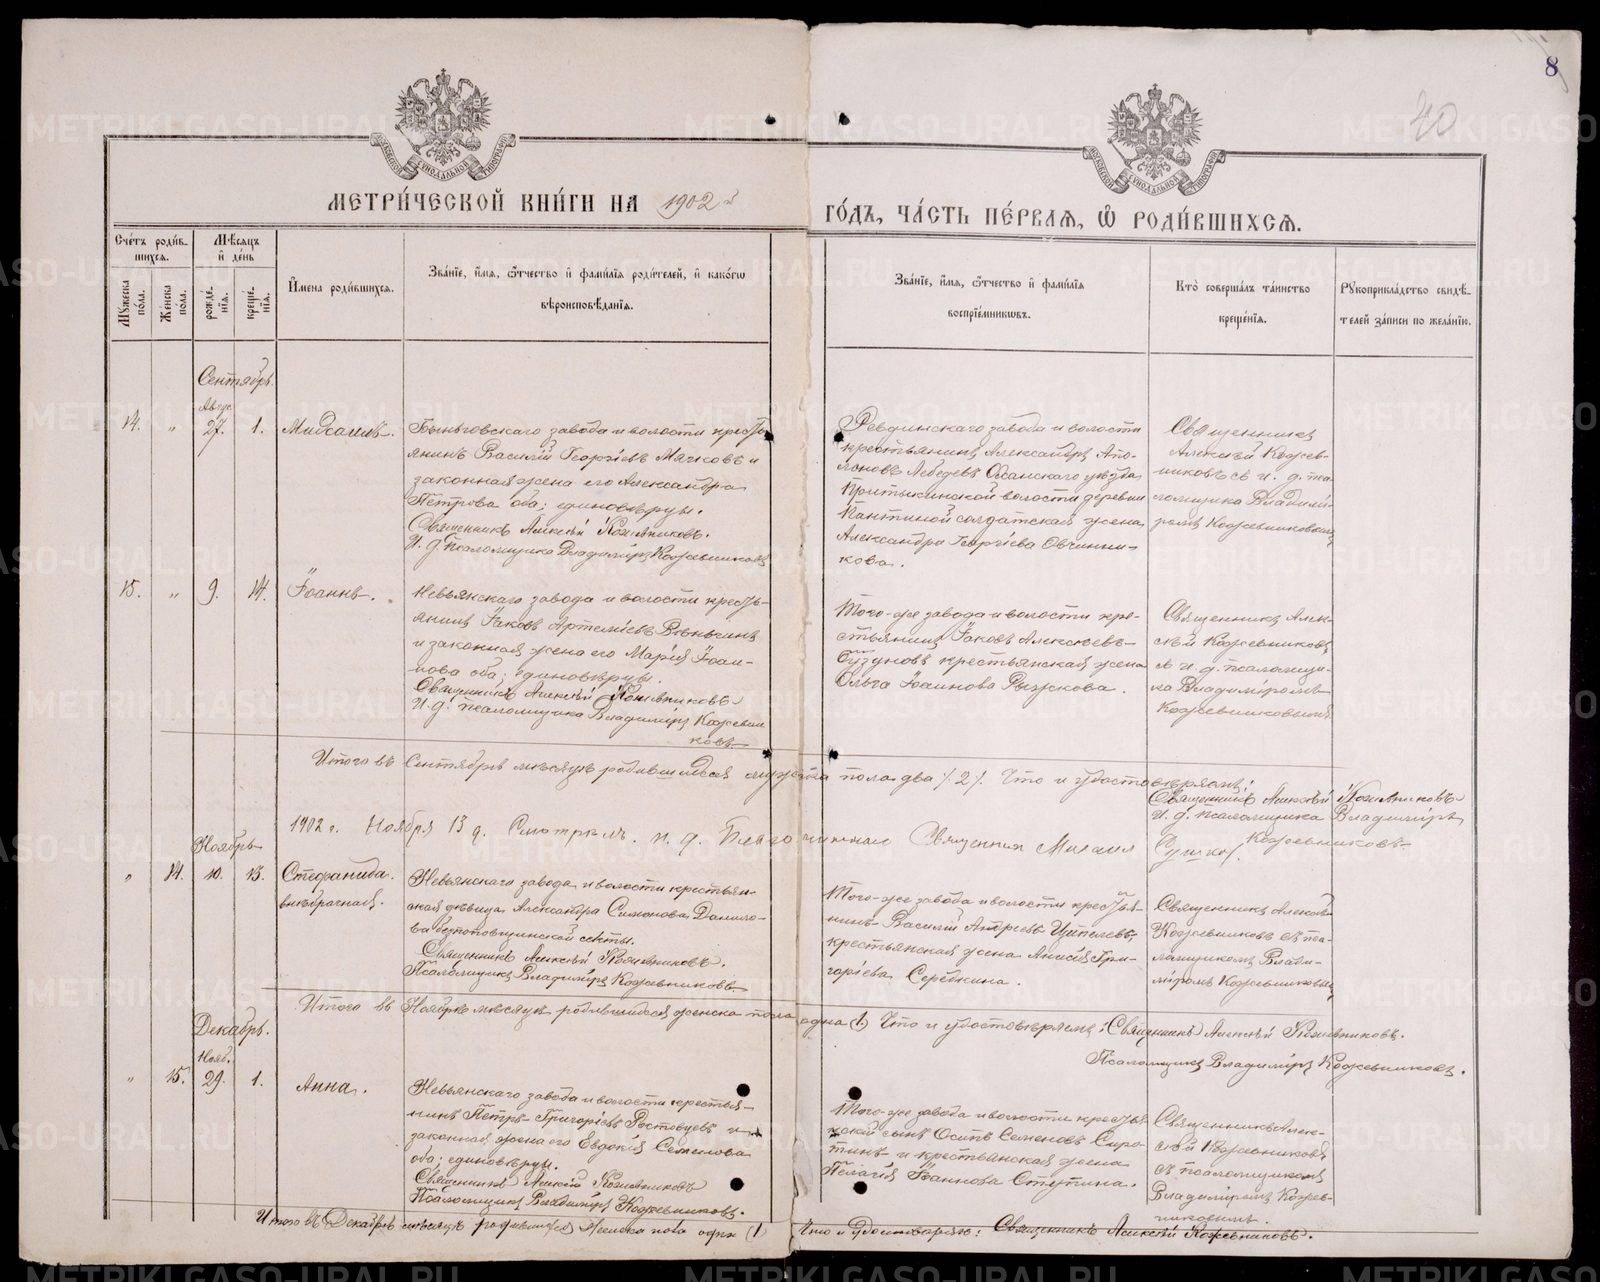 8
40
МОСКОВСКОЙ СУНОДАЛЬНОЙ ТИПОГРАФІИ
МОСКОВСКОЙ СУНОДАЛЬНОЙ ТИПОГРАФІИ
МЕТРИ́ЧЕСКОЙ КНИ́ГИ НА 1902 й
ГО́ДЪ, ЧА́СТЬ ПЕ́РВАѦ, Ѡ РОДИ́ВШИХСѦ.
Счетъ роди́в-
шихся.
Мужеска по́ла.
Женска по́ла.
Мѣсяцъ и де́нь
рожде́нія.
креще́нія.
Имена роди́вшихся.
Зва́ніе, и́мя, ѻ҆́тчество и фами́лія роди́телей, и како́гѡ
вѣроисповѣ́данія.
Зва́ніе, и́мя, ѻ҆́тчество и фами́лія
воспріе́мниковъ.
Кто̀ соверша́лъ та́инство
креще́нія.
Рукоприкла́дство свидѣ́-
телей за́писи по жела́нію.
Сентябрь.
Авгус
14. „ 27. 1.
Бынговскаго завода и волости кресть-
янинъ Василій Георгіевъ Мячковъ и
законная жена его Александра
Петрова оба; единовѣрцы.
Священникъ Алексѣй Кожевниковъ.
И. д. Псаломщика Владиміръ Кожевниковъ
Ревдинскаго завода и волости
крестьянинъ Александръ Апо-
лоновъ Лебедевъ Оханскаго уѣзда
Притыкинской волости деревни
солдатская жена
Александра Георгіева Овчинни-
кова.
Священникъ
Алексѣй Кожев-
никовъ съ и. д. пса-
ломщика Владимі-
ромъ Кожевниковымъ
15. „ 9. 14. Іоаннъ.
Невьянскаго завода и волости кресть-
янинъ Іаковъ Артеміевъ
и законная жена его Марія Іоан-
нова оба; единовѣрцы.
Священникъ Алексѣй Кожевниковъ
И. д. псаломщика Владиміръ Кожевни
ковъ
Того-же завода и волости кре-
стьянинъ Іаковъ Алексѣевъ
крестьянская жена
Ольга Іоаннова Рыжкова.
Священникъ Алек-
сѣй Кожевниковъ
съ и. д. псаломщи-
ка Владиміромъ
Кожевниковымъ
Итого въ Сентябрѣ мѣсяцѣ родившихся мужска пола два /2/. Что и удостовѣряемъ:
Священникъ Алексѣй Кожевниковъ
И. д. Псаломщика Владиміръ
Кожевниковъ.
1902 г. Ноября 13 д. Смотрѣлъ. и. д. Благочиннаго Священник Михаил
Ноябрь
„ 14. 10. 13. Стефанида.
внѣбрачная.
Невьянскаго завода и волости крестьян-
ская дѣвица Александра Симонова Данило-
ва безпоповщинской секты.
Священникъ Алексѣй Кожевниковъ.
Псаломщикъ Владиміръ Кожевниковъ
Того-же завода и волости крестья-
нинъ Василій Андреевъ
крестьянская жена Анисія Гри-
горіева Серебкина.
Священникъ Алексѣй
Кожевниковъ съ пса-
ломщикомъ Влади-
міромъ Кожевниковымъ
Итого въ Ноябрѣ мѣсяцѣ родившихся женска пола одна (1) Что и удостовѣряемъ: Священникъ Алексѣй Кожевниковъ.
Псаломщикъ Владиміръ Кожевниковъ.
Декабрь.
Нояб.
„ 15. 29. 1. Анна.
Невьянскаго завода и волости крестья-
нинъ Петръ Григоріевъ Ростовцевъ и
законная жена его Евдокія Семенова
оба; единовѣрцы.
Священникъ Алексѣй Кожевниковъ
Псаломщикъ Владиміръ Кожевниковъ.
Того-же завода и волости крестья-
нской сынъ Осипъ Семеновъ Сиро-
тинъ и крестьянская жена
Пелагія Іоаннова Ступина.
Священникъ Алек-
сѣй Кожевниковъ
съ псаломщикомъ
Владиміромъ Кожев-
никовымъ.
Итого въ Декабрѣ мѣсяцѣ родившихся женска пола одна (1) Что и удостовѣряю: Священникъ Алексѣй Кожевниковъ.
METRIKI.GASO-URAL.RU